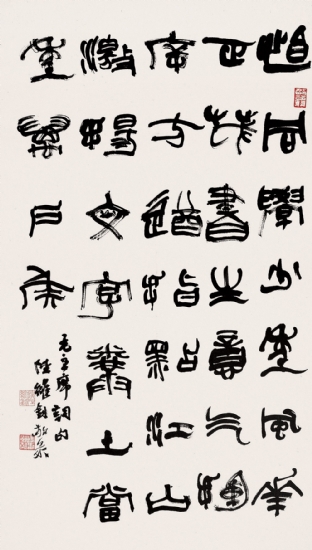 恰同學少年風華
正茂書生意气揮
斥方遒指點江山
激揚文字糞土當
年萬户侯
毛主席詞句
陸維釗敬录